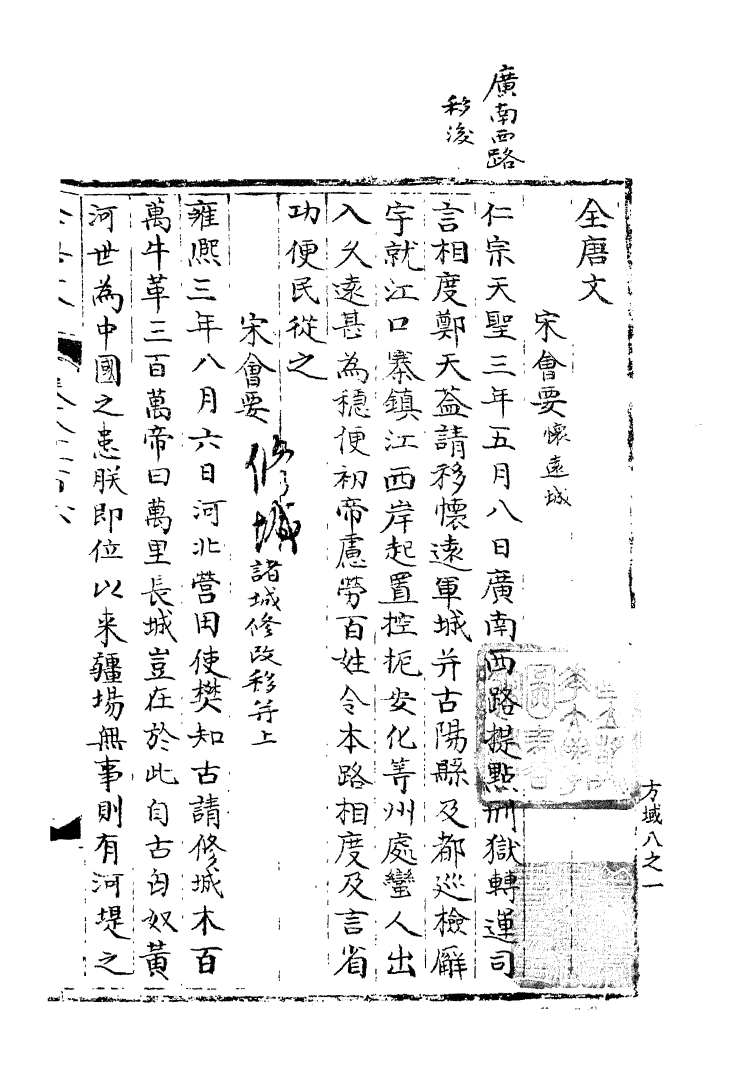 廣南西路
移後
全唐文
宋會要懷遠城
仁宗天聖三年五月八日廣南西路提點刑獄轉運司
言相度鄭天益請移懷遠軍城并古陽縣及都巡檢廨
宇就江口寨鎮江西岸起置控扼安化等州處蠻人出
入久遠甚為穩便初帝慮勞百姓令本路相度及言省
功便民從之
宋會要 修城 諸城修改移并上
雍熙三年八月六日河北營田使樊知古請修城木百
萬牛革三百萬帝曰萬里長城豈在於此自古匈奴黃
河世為中國之患朕即位以来疆場無事則有河堤之
方域八之一